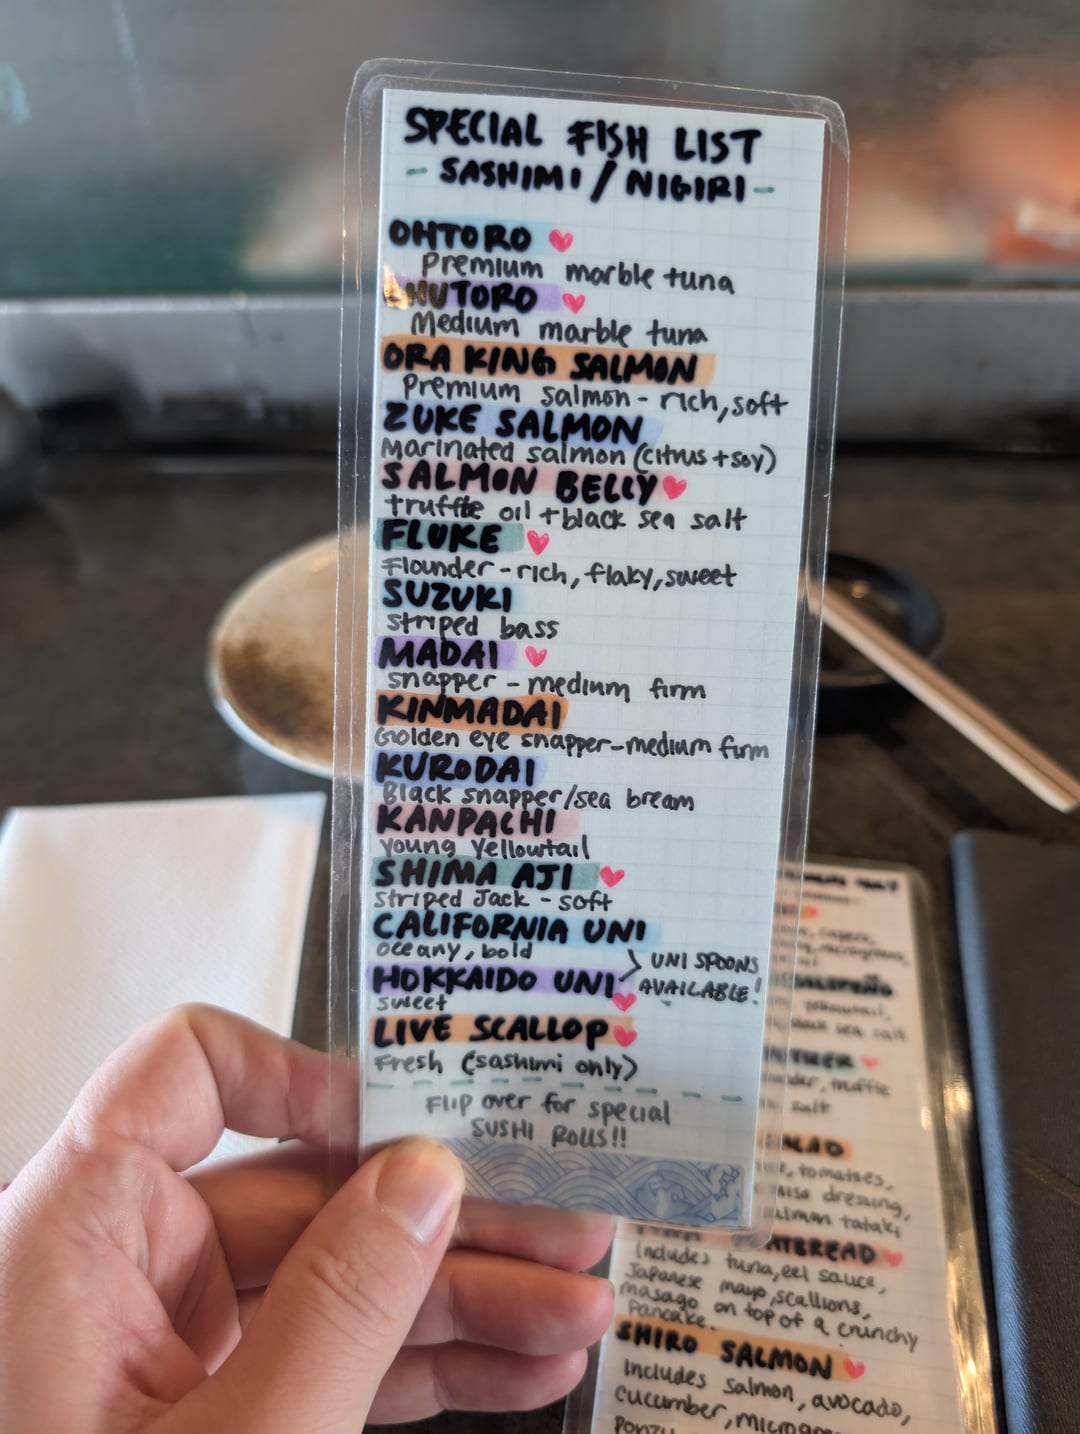 SPECIAL FISH LIST
- SASHIMI / NIGIRI -
OHTORO
Premium marble tuna
CHUTORO
Medium marble tuna
ORA KING SALMON
Premium salmon - rich, soft
ZUKE SALMON
Marinated salmon (citrus + soy)
SALMON BELLY
truffle oil + black sea salt
FLUKE
Flounder - rich, flaky, sweet
SUZUKI
striped bass
MADAI
snapper - medium firm
KINMADAI
Golden eye snapper - medium firm
KURODAI
Black snapper/sea bream
KANPACHI
young Yellowtail
SHIMA AJI
striped Jack - soft
CALIFORNIA UNI
oceany, bold
> UNI SPOONS
AVAILABLE!
HOKKAIDO UNI
sweet
LIVE SCALLOP
Fresh (sashimi only)
FLIP over for special
SUSHI ROLLS!!
truffle
salt
tomatoes,
dressing,
tataki
Includes tuna, eel sauce,
Japanese mayo, scallions,
masago on top of a crunchy
Pancake.
SHIRO SALMON
Includes salmon, avocado,
cucumber,